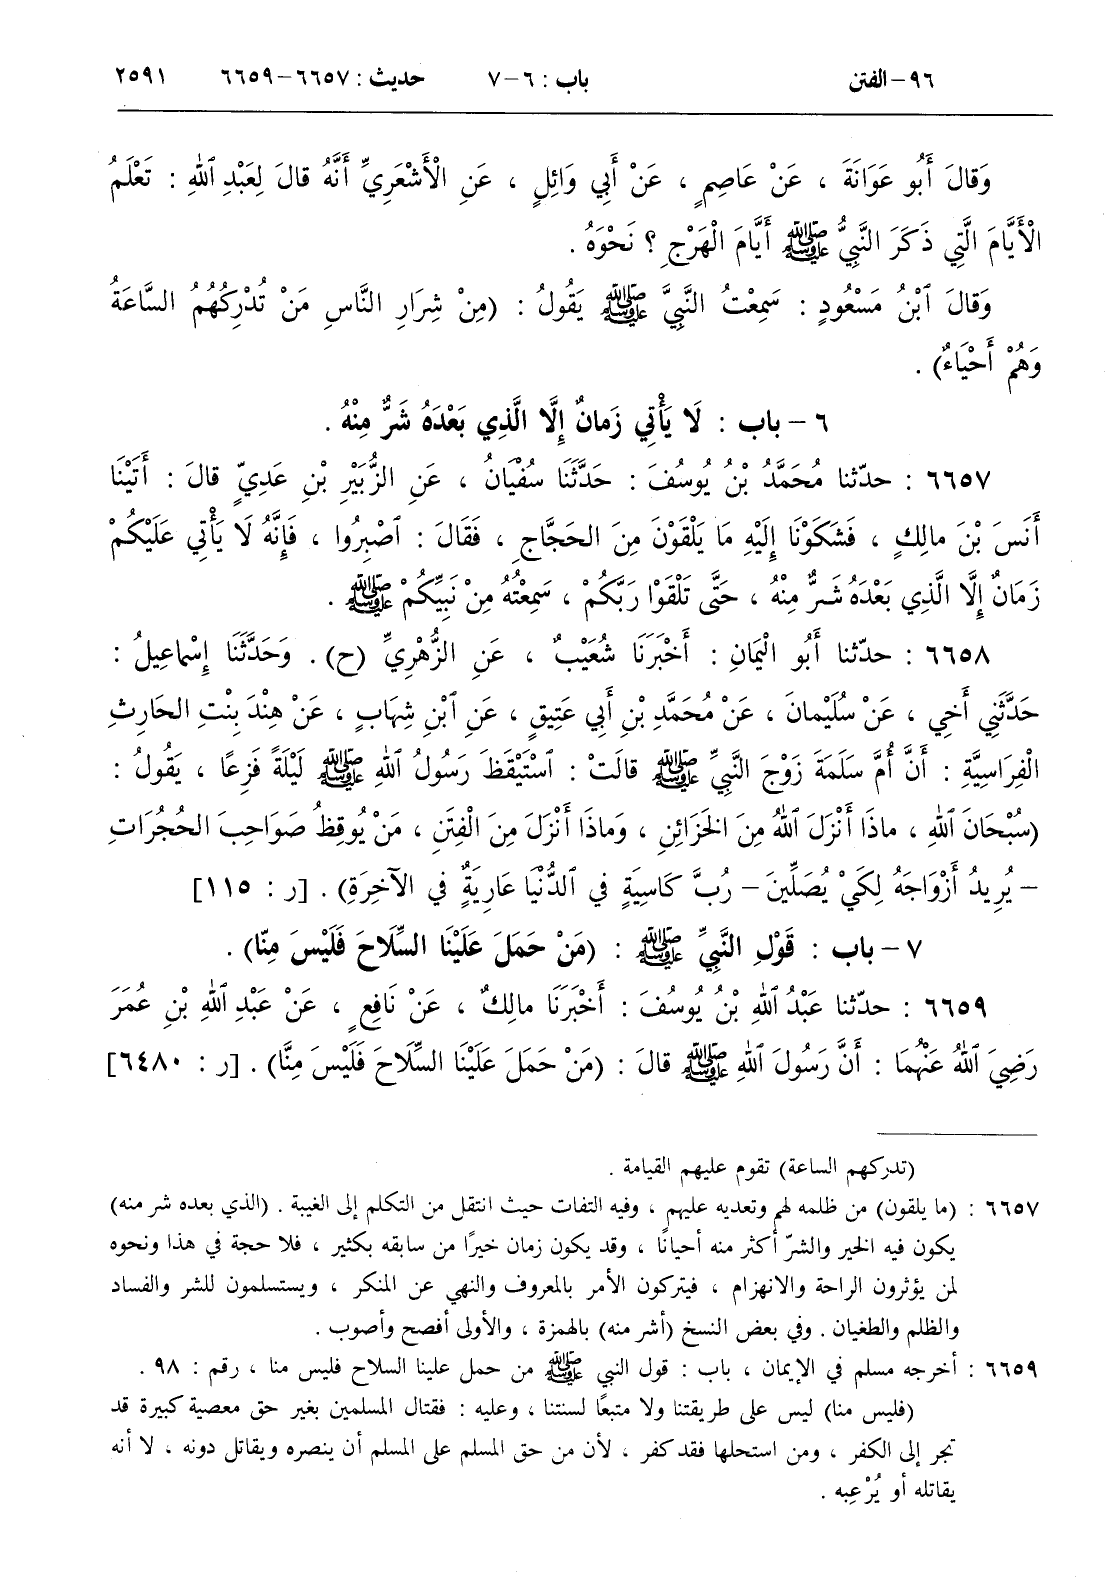 ٩٦ – الفتن باب : ٦ – ٧ حديث : ٦٦٥٧ – ٦٦٥٩ ٢٥٩١
وَقالَ أَبُو عَوَانَةَ ، عَنْ عَاصِمٍ ، عَنْ أَبِي وَائِلٍ ، عَنِ الْأَشْعَرِيِّ أَنَّهُ قالَ لِعَبْدِ ٱللهِ : تَعْلَمُ
الْأَيَّامَ الَّتِي ذَكَرَ النَّبِيُّ ﷺ أَيَّامَ الْهَرْجِ ؟ نَحْوَهُ .
وَقالَ ٱبْنُ مَسْعُودٍ : سَمِعْتُ النَّبِيَّ ﷺ يَقُولُ : (مِنْ شِرَارِ النَّاسِ مَنْ تُدْرِكُهُمُ السَّاعَةُ
وَهُمْ أَحْيَاءٌ) .
٦ – باب : لَا يَأْتِي زَمانٌ إِلَّا الَّذِي بَعْدَهُ شَرٌّ مِنْهُ .
٦٦٥٧ : حدّثنا مُحَمَّدُ بْنُ يُوسُفَ : حَدَّثَنَا سُفْيَانُ ، عَنِ الزُّبَيْرِ بْنِ عَدِيٍّ قالَ : أَتَيْنَا
أَنَسَ بْنَ مالِكٍ ، فَشَكَوْنَا إِلَيْهِ مَا يَلْقَوْنَ مِنَ الحَجَّاجِ ، فَقَالَ : ٱصْبِرُوا ، فَإِنَّهُ لَا يَأْتِي عَلَيْكُمْ
زَمَانٌ إِلَّا الَّذِي بَعْدَهُ شَرٌّ مِنْهُ ، حَتَّى تَلْقَوْا رَبَّكُمْ ، سَمِعْتُهُ مِنْ نَبِيِّكُمْ ﷺ .
٦٦٥٨ : حدّثنا أَبُو الْيَمَانِ : أَخْبَرَنَا شُعَيْبٌ ، عَنِ الزُّهْرِيِّ (ح) . وَحَدَّثَنَا إِسْماعِيلُ :
حَدَّثَنِي أَخِي ، عَنْ سُلَيْمانَ ، عَنْ مُحَمَّدِ بْنِ أَبِي عَتِيقٍ ، عَنِ ٱبْنِ شِهَابٍ ، عَنْ هِنْدَ بِنْتِ الحَارِثِ
الْفِرَاسِيَّةِ : أَنَّ أُمَّ سَلَمَةَ زَوْجَ النَّبِيِّ ﷺ قالَتْ : ٱسْتَيْقَظَ رَسُولُ ٱللهِ ﷺ لَيْلَةً فَزِعًا ، يَقُولُ :
(سُبْحَانَ ٱللهِ ، ماذَا أَنْزَلَ ٱللهُ مِنَ الخَزَائِنِ ، وَماذَا أَنْزَلَ مِنَ الْفِتَنِ ، مَنْ يُوقِظُ صَوَاحِبَ الحُجُرَاتِ
– يُرِيدُ أَزْوَاجَهُ لِكَيْ يُصَلِّينَ – رُبَّ كَاسِيَةٍ في ٱلدُّنْيَا عَارِيَةٌ في الآخِرَةِ) . [ر : ١١٥]
٧ – باب : قَوْلِ النَّبِيِّ ﷺ : (مَنْ حَمَلَ عَلَيْنَا السِّلَاحَ فَلَيْسَ مِنَّا) .
٦٦٥٩ : حدّثنا عَبْدُ ٱللهِ بْنُ يُوسُفَ : أَخْبَرَنَا مالِكٌ ، عَنْ نَافِعٍ ، عَنْ عَبْدِ ٱللهِ بْنِ عُمَرَ
رَضِيَ ٱللهُ عَنْهُمَا : أَنَّ رَسُولَ ٱللهِ ﷺ قالَ : (مَنْ حَمَلَ عَلَيْنَا السِّلَاحَ فَلَيْسَ مِنَّا) . [ر : ٦٤٨٠]
(تدركهم الساعة) تقوم عليهم القيامة .
٦٦٥٧ : (ما يلقون) من ظلمه لهم وتعديه عليهم ، وفيه التفات حيث انتقل من التكلم إلى الغيبة . (الذي بعده شر منه)
يكون فيه الخير والشرّ أكثر منه أحيانًا ، وقد يكون زمان خيرًا من سابقه بكثير ، فلا حجة في هذا ونحوه
لمن يؤثرون الراحة والانهزام ، فيتركون الأمر بالمعروف والنهي عن المنكر ، ويستسلمون للشر والفساد
والظلم والطغيان . وفي بعض النسخ (أشر منه) بالهمزة ، والأولى أفصح وأصوب .
٦٦٥٩ : أخرجه مسلم في الإيمان ، باب : قول النبي ﷺ من حمل علينا السلاح فليس منا ، رقم : ٩٨ .
(فليس منا) ليس على طريقتنا ولا متبعًا لسنتنا ، وعليه : فقتال المسلمين بغير حق معصية كبيرة قد
تجر إلى الكفر ، ومن استحلها فقد كفر ، لأن من حق المسلم على المسلم أن ينصره ويقاتل دونه ، لا أنه
يقاتله أو يُرْعِبه .